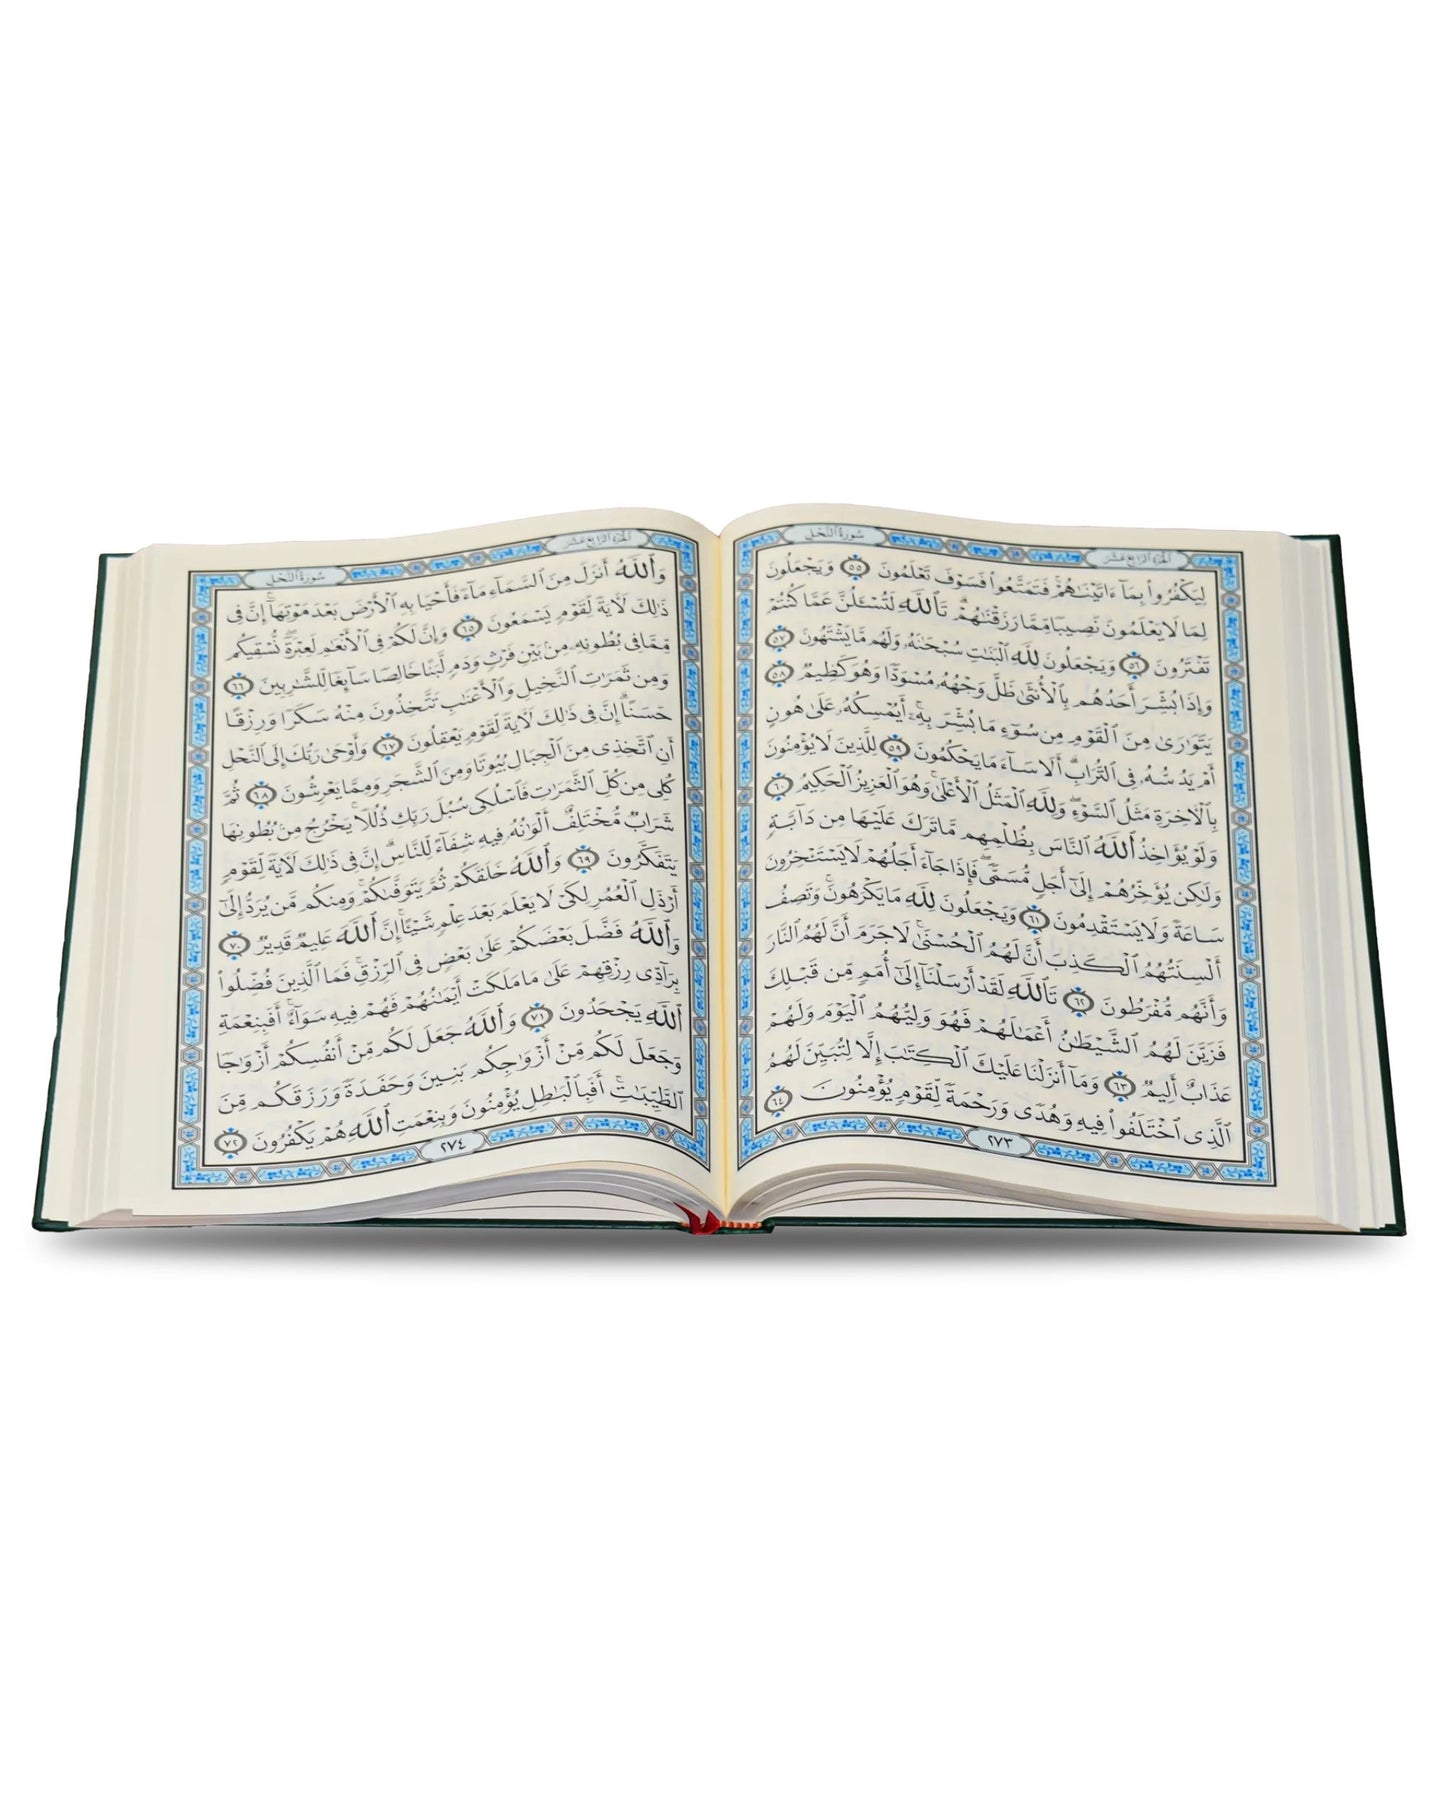 الجُزْءُ الرَّابِعَ عَشَرَ سُورَةُ النَّحْلِ
لِيَكۡفُرُواْ بِمَآ ءَاتَيۡنَٰهُمۡۚ فَتَمَتَّعُواْ فَسَوۡفَ تَعۡلَمُونَ ٥٥ وَيَجۡعَلُونَ
لِمَا لَا يَعۡلَمُونَ نَصِيبٗا مِّمَّا رَزَقۡنَٰهُمۡۗ تَٱللَّهِ لَتُسۡـَٔلُنَّ عَمَّا كُنتُمۡ
تَفۡتَرُونَ ٥٦ وَيَجۡعَلُونَ لِلَّهِ ٱلۡبَنَٰتِ سُبۡحَٰنَهُۥ وَلَهُم مَّا يَشۡتَهُونَ ٥٧
وَإِذَا بُشِّرَ أَحَدُهُم بِٱلۡأُنثَىٰ ظَلَّ وَجۡهُهُۥ مُسۡوَدّٗا وَهُوَ كَظِيمٞ ٥٨
يَتَوَٰرَىٰ مِنَ ٱلۡقَوۡمِ مِن سُوٓءِ مَا بُشِّرَ بِهِۦٓۚ أَيُمۡسِكُهُۥ عَلَىٰ هُونٍ
أَمۡ يَدُسُّهُۥ فِي ٱلتُّرَابِۗ أَلَا سَآءَ مَا يَحۡكُمُونَ ٥٩ لِلَّذِينَ لَا يُؤۡمِنُونَ
بِٱلۡأٓخِرَةِ مَثَلُ ٱلسَّوۡءِۖ وَلِلَّهِ ٱلۡمَثَلُ ٱلۡأَعۡلَىٰۚ وَهُوَ ٱلۡعَزِيزُ ٱلۡحَكِيمُ ٦٠
وَلَوۡ يُؤَاخِذُ ٱللَّهُ ٱلنَّاسَ بِظُلۡمِهِم مَّا تَرَكَ عَلَيۡهَا مِن دَآبَّةٖ
وَلَٰكِن يُؤَخِّرُهُمۡ إِلَىٰٓ أَجَلٖ مُّسَمّٗىۖ فَإِذَا جَآءَ أَجَلُهُمۡ لَا يَسۡتَـٔۡخِرُونَ
سَاعَةٗ وَلَا يَسۡتَقۡدِمُونَ ٦١ وَيَجۡعَلُونَ لِلَّهِ مَا يَكۡرَهُونَۚ وَتَصِفُ
أَلۡسِنَتُهُمُ ٱلۡكَذِبَ أَنَّ لَهُمُ ٱلۡحُسۡنَىٰۚ لَا جَرَمَ أَنَّ لَهُمُ ٱلنَّارَ
وَأَنَّهُم مُّفۡرَطُونَ ٦٢ تَٱللَّهِ لَقَدۡ أَرۡسَلۡنَآ إِلَىٰٓ أُمَمٖ مِّن قَبۡلِكَ
فَزَيَّنَ لَهُمُ ٱلشَّيۡطَٰنُ أَعۡمَٰلَهُمۡ فَهُوَ وَلِيُّهُمُ ٱلۡيَوۡمَ وَلَهُمۡ
عَذَابٌ أَلِيمٞ ٦٣ وَمَآ أَنزَلۡنَا عَلَيۡكَ ٱلۡكِتَٰبَ إِلَّا لِتُبَيِّنَ لَهُمُ
ٱلَّذِي ٱخۡتَلَفُواْ فِيهِ وَهُدٗى وَرَحۡمَةٗ لِّقَوۡمٖ يُؤۡمِنُونَ ٦٤
٢٧٣
الجُزْءُ الرَّابِعَ عَشَرَ سُورَةُ النَّحْلِ
وَٱللَّهُ أَنزَلَ مِنَ ٱلسَّمَآءِ مَآءٗ فَأَحۡيَا بِهِ ٱلۡأَرۡضَ بَعۡدَ مَوۡتِهَآۚ إِنَّ فِي
ذَٰلِكَ لَأٓيَةٗ لِّقَوۡمٖ يَسۡمَعُونَ ٦٥ وَإِنَّ لَكُمۡ فِي ٱلۡأَنۡعَٰمِ لَعِبۡرَةٗۖ نُّسۡقِيكُم
مِّمَّا فِي بُطُونِهِۦ مِنۢ بَيۡنِ فَرۡثٖ وَدَمٖ لَّبَنًا خَالِصٗا سَآئِغٗا لِّلشَّٰرِبِينَ ٦٦
وَمِن ثَمَرَٰتِ ٱلنَّخِيلِ وَٱلۡأَعۡنَٰبِ تَتَّخِذُونَ مِنۡهُ سَكَرٗا وَرِزۡقًا
حَسَنًاۚ إِنَّ فِي ذَٰلِكَ لَأٓيَةٗ لِّقَوۡمٖ يَعۡقِلُونَ ٦٧ وَأَوۡحَىٰ رَبُّكَ إِلَى ٱلنَّحۡلِ
أَنِ ٱتَّخِذِي مِنَ ٱلۡجِبَالِ بُيُوتٗا وَمِنَ ٱلشَّجَرِ وَمِمَّا يَعۡرِشُونَ ٦٨ ثُمَّ
كُلِي مِن كُلِّ ٱلثَّمَرَٰتِ فَٱسۡلُكِي سُبُلَ رَبِّكِ ذُلُلٗاۚ يَخۡرُجُ مِنۢ بُطُونِهَا
شَرَابٞ مُّخۡتَلِفٌ أَلۡوَٰنُهُۥ فِيهِ شِفَآءٞ لِّلنَّاسِۚ إِنَّ فِي ذَٰلِكَ لَأٓيَةٗ لِّقَوۡمٖ
يَتَفَكَّرُونَ ٦٩ وَٱللَّهُ خَلَقَكُمۡ ثُمَّ يَتَوَفَّىٰكُمۡۚ وَمِنكُم مَّن يُرَدُّ إِلَىٰٓ
أَرۡذَلِ ٱلۡعُمُرِ لِكَيۡ لَا يَعۡلَمَ بَعۡدَ عِلۡمٖ شَيۡـًٔاۚ إِنَّ ٱللَّهَ عَلِيمٞ قَدِيرٞ ٧٠
وَٱللَّهُ فَضَّلَ بَعۡضَكُمۡ عَلَىٰ بَعۡضٖ فِي ٱلرِّزۡقِۚ فَمَا ٱلَّذِينَ فُضِّلُواْ
بِرَآدِّي رِزۡقِهِمۡ عَلَىٰ مَا مَلَكَتۡ أَيۡمَٰنُهُمۡ فَهُمۡ فِيهِ سَوَآءٌۚ أَفَبِنِعۡمَةِ
ٱللَّهِ يَجۡحَدُونَ ٧١ وَٱللَّهُ جَعَلَ لَكُم مِّنۡ أَنفُسِكُمۡ أَزۡوَٰجٗا
وَجَعَلَ لَكُم مِّنۡ أَزۡوَٰجِكُم بَنِينَ وَحَفَدَةٗ وَرَزَقَكُم مِّنَ
ٱلطَّيِّبَٰتِۚ أَفَبِٱلۡبَٰطِلِ يُؤۡمِنُونَ وَبِنِعۡمَتِ ٱللَّهِ هُمۡ يَكۡفُرُونَ ٧٢
٢٧٤